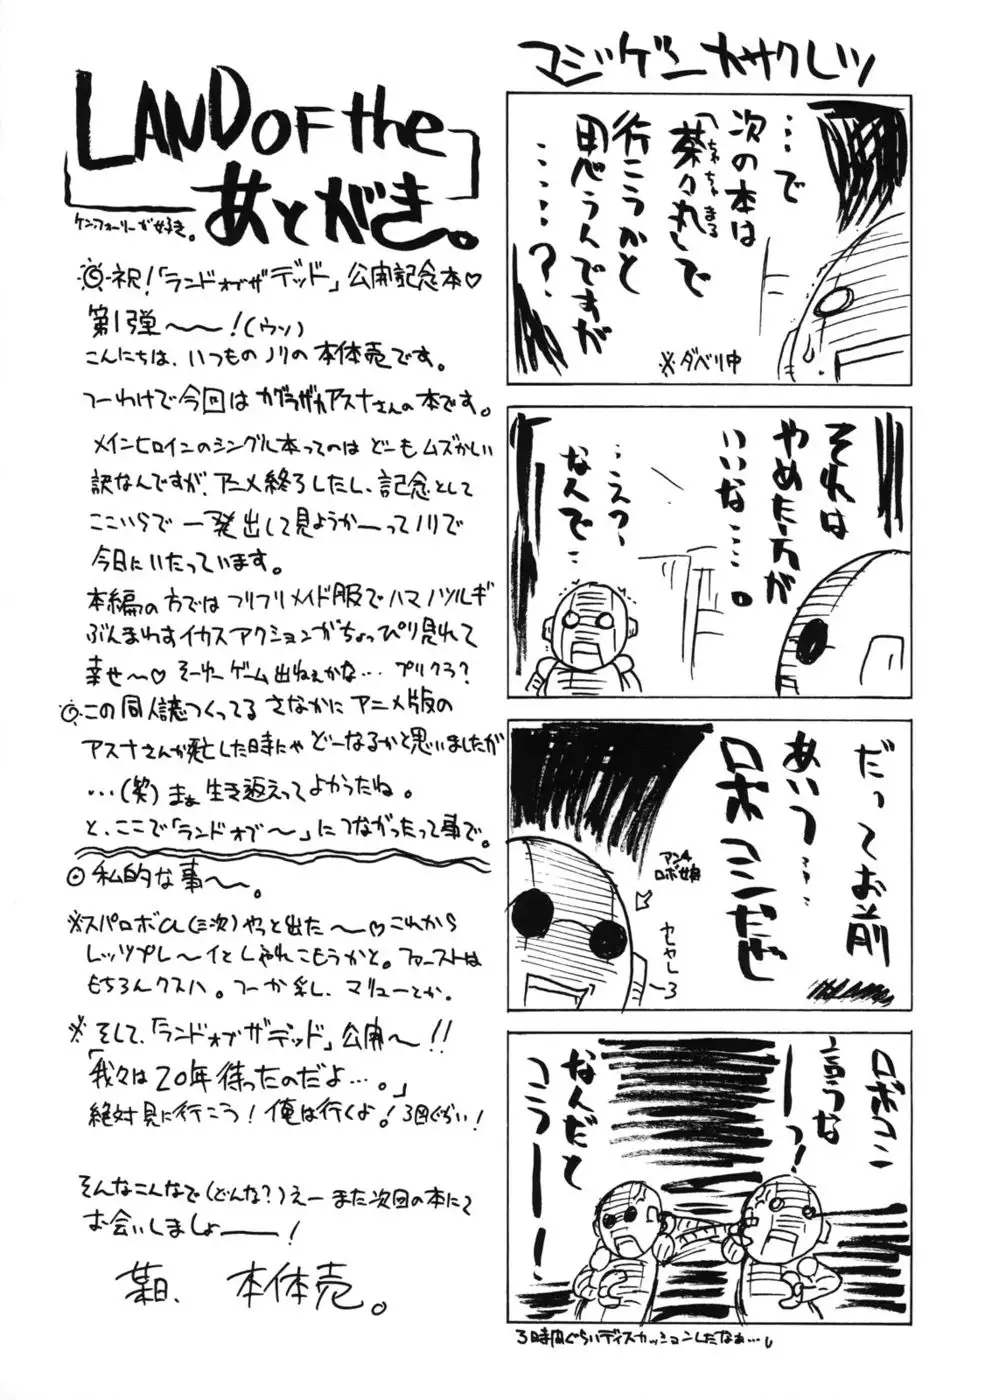 LAND OF the
あとがき。
ケン・フォーリーが好き。
◎祝！「ランドオブザデッド」公開記念本♡
第1弾〜〜！（ウソ）
こんにちは、いつものノリの本体売です。
つーわけで今回はカグラザカアスナさんの本です。
メインヒロインのシングル本ってのはどーもムズかしい
訳なんですが、アニメ終了したし、記念として
ここいらで一発出して見ようかーってノリで
今日にいたっています。
本編の方ではフリフリメイド服でハマノツルギ
ぶんまわすイカスアクションがちょっぴり見れて
幸せ〜♡ そーいやゲーム出ねぇかな…プリクラ？
◎この同人誌つくってるさなかにアニメ版の
アスナさんが死した時にゃどーなるかと思いましたが
…（笑）まぁ生き返えってよかったね。
と、ここで「ランドオブ〜」につながったって事で。
⊙私的な事〜〜。
※スパロボα（三次）やっと出た〜〜♡これから
レッツプレ〜イとしゃれこもうかと。ファーストは
もちろんクスハ。つーか乳し、マリューとか。
※そして、「ランドオブザデッド」公開〜！！
「我々は20年待ったのだよ…。」
絶対見に行こう！俺は行くよ！3回ぐらい！
そんなこんなで（どんな？）えーまた次回の本にて
お会いしましょーー！
某日、本体売。
マジゲンカサクレツ
…で
次の本は
「茶々丸」で
ちゃちゃまる
行こうかと
思うんですが
……？
※ダベリ中
それは
やめた方が
いいな…。
…えっ、
なんで…
だってお前
あいつ…
ロボコンだぜ
アンチ
ロボ娘
ロボコン
言うな
ーっ！
なんだと
コラーー！
3時間ぐらいディスカッションしたなぁ…。